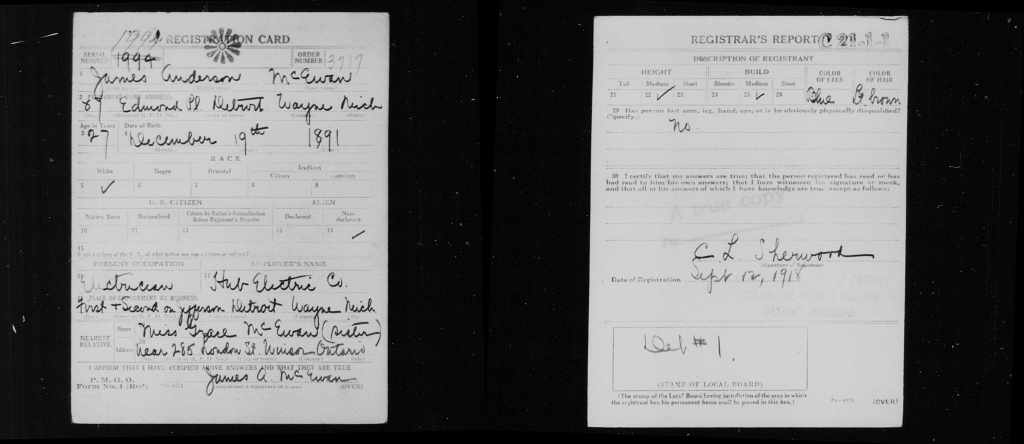 1994
REGISTRATION CARD
SERIAL NUMBER 1994
ORDER NUMBER 3717
1 James Anderson McEwan
87 Edmond Pl Detroit Wayne Mich
Age in Years Date of Birth
27 December 19th 1891
RACE
White Negro Oriental Indian
Citizen
5 ✓ 6 7 8
U. S. CITIZEN ALIEN
Native Born Naturalized Citizen by Father's Naturalization Before Registrant's Majority Declarant Non-declarant
10 11 12 13 14 ✓
15
PRESENT OCCUPATION EMPLOYER'S NAME
Electrician Hub Electric Co.
PLACE OF EMPLOYMENT OR BUSINESS
First + Second on Jefferson Detroit Wayne Mich
NEAREST RELATIVE
Name Miss Grace McEwan (sister)
Address near 285 London St. Winsor Ontario
I AFFIRM THAT I HAVE VERIFIED ABOVE ANSWERS AND THAT THEY ARE TRUE
P. M. G. O.
Form No. 1 (Red)
James A. McEwan
(OVER)
REGISTRAR'S REPORT
DESCRIPTION OF REGISTRANT
HEIGHT BUILD COLOR OF EYES COLOR OF HAIR
Tall Medium Short Slender Medium Stout
21 22 ✓ 23 24 25 ✓ 26 Blue Bt brown
29 Has person lost arm, leg, hand, eye, or is he obviously physically disqualified?
(Specify.) No.
30 I certify that my answers are true; that the person registered has read or has
had read to him his own answers; that I have witnessed his signature or mark,
and that all of his answers of which I have knowledge are true, except as follows:
A true copy
C L Sherwood
Date of Registration Sept 12, 1918
Det #1.
(STAMP OF LOCAL BOARD)
(The stamp of the Local Board having jurisdiction of the area in which
the registrant has his permanent home shall be placed in this box.)
(OVER)